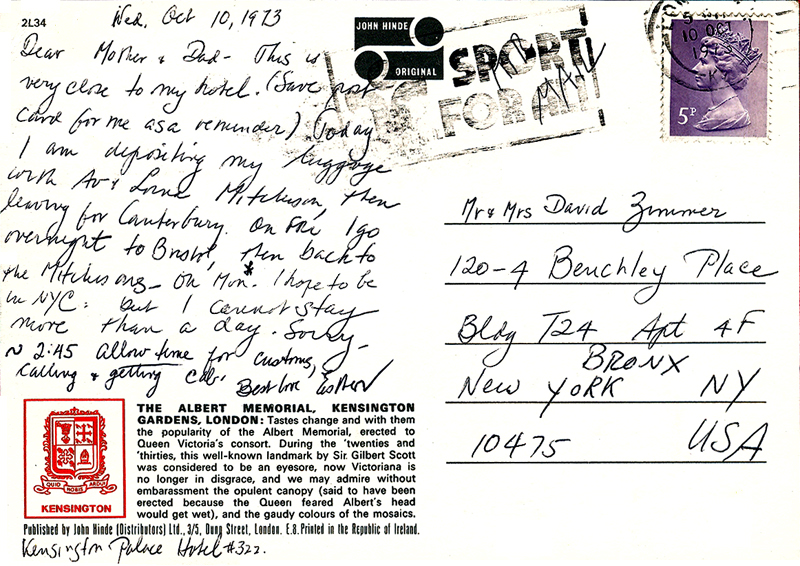 2L34
Wed, Oct 10, 1973
Dear Mother & Dad - This is
very close to my hotel. (Save post
card for me as a reminder) Today
I am depositing my luggage
with Av & Lorna Mitchison, then
leaving for Canterbury. On Fri, I go
overnight to Bristol, then back to
the Mitchisons - On Mon.* I hope to be
in NYC: but I cannot stay
more than a day. Sorry -
~ 2:45 Allow time for customs,
calling & getting cab. Best love Esther
JOHN HINDE
ORIGINAL
SPORT
FOR ALL
10 OCT
5P
Mr & Mrs David Zimmer
120-4 Benchley Place
Bldg T24 Apt 4F
BRONX
New YORK NY
10475 USA
QUID NOBIS ARDUI
KENSINGTON
THE ALBERT MEMORIAL, KENSINGTON
GARDENS, LONDON: Tastes change and with them
the popularity of the Albert Memorial, erected to
Queen Victoria's consort. During the 'twenties and
'thirties, this well-known landmark by Sir. Gilbert Scott
was considered to be an eyesore, now Victoriana is
no longer in disgrace, and we may admire without
embarrassment the opulent canopy (said to have been
erected because the Queen feared Albert's head
would get wet), and the gaudy colours of the mosaics.
Published by John Hinde (Distributors) Ltd., 3/5, Dung Street, London. E.8. Printed in the Republic of Ireland.
Kensington Palace Hotel #322.